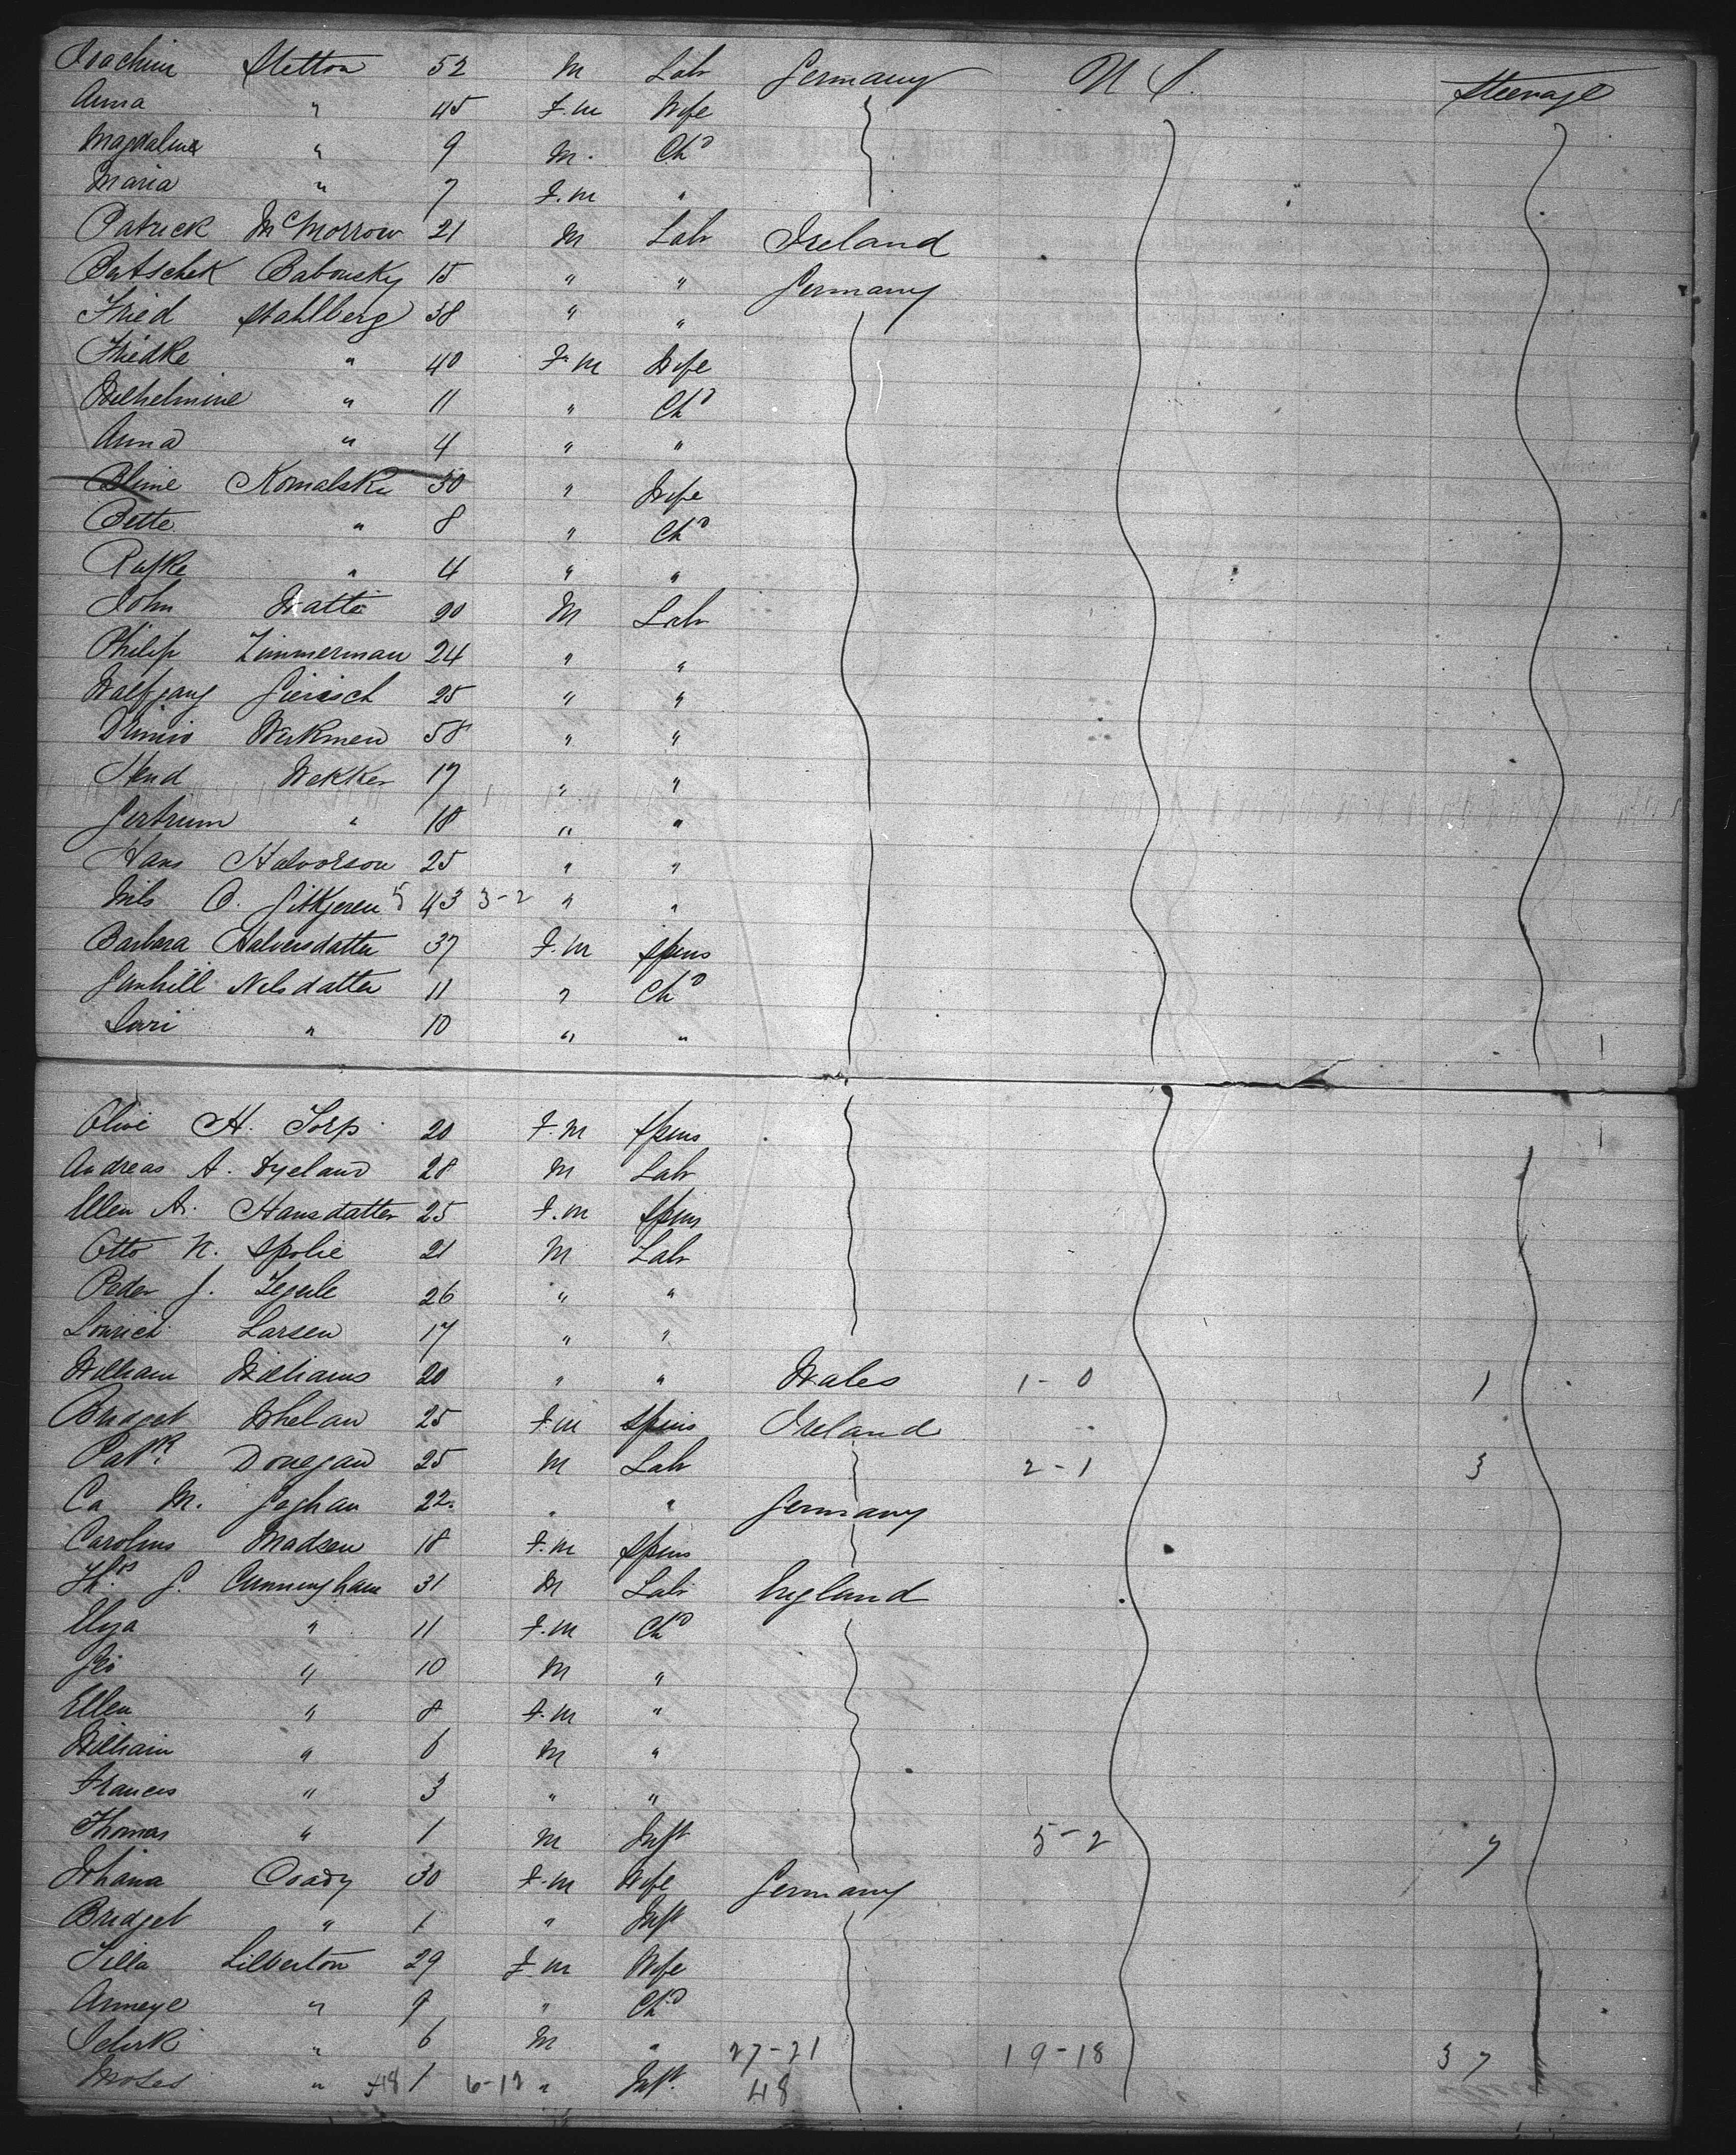 Joachim Stetton 52 M Labr Germany U S. Steerage
Anna " 45 F.m Wife
Magdalina " 9 M. Chd
Maria " 7 F.m "
Patrick McMorrow 21 M Labr Ireland
Babousky 15 " " Germany
Fried Stahlberg 38 " "
Friedke " 40 F.m Wife
Wilhelmine " 11 " Chd
Anna " 4 " "
Kowalski 30 " Wife
Bette " 8 " Chd
Rufke " 4 " "
John 20 M Labr
Philip Zimmerman 24 " "
Wolfgang 25 " "
58 " "
Hend Wekker 17 " "
Gertrum " 18 " "
Hans Halvorson 25 " "
Nils O. 5 43 3-2 " "
Barbara Halversdatter 37 F.m Spins
Gunhill Nelsdatter 11 " Chd
" 10 " "
Olive H. Torp 20 F.M Spins
Andreas A. 28 M Labr
Ellen A. Hansdatter 25 F.m Spins
Otto N. Spolie 21 M Labr
Peder J. 26 " "
Larsen 17 " "
William Williams 20 " " Wales 1-0 1
Bridget Whelan 25 F.m Spins Ireland
Patk Donegan 25 M Labr 2-1 3
Ca M. 22 " " Germany
Carolins Madsen 18 F.m Spins
Thos J. Cunningham 31 M Labr England
Elyza " 11 F.m Chd
Geo " 10 M "
Ellen " 8 F.m "
William " 6 M "
Frances " 3 " "
Thomas " 1 M Inft 5-2 7
Johana Coady 30 F.m Wife Germany
Bridget " 1 " Inft
Silla Silberton 29 F.m Wife
Anneye " 9 " Chd
" 6 M " 27-21 19-18 37
Moses " 48 1 6-12 " Inft. 48